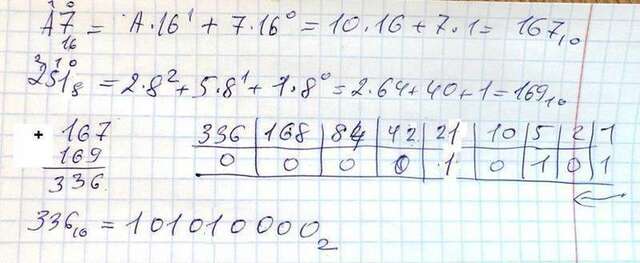 A¹7⁰₁₆ = A·16¹ + 7·16⁰ = 10·16 + 7·1 = 167₁₀
2²5¹1⁰₈ = 2·8² + 5·8¹ + 1·8⁰ = 2·64 + 40 + 1 = 169₁₀
+ 167
169
336
336 | 168 | 84 | 42 | 21 | 10 | 5 | 2 | 1
0 | 0 | 0 | 0 | 1 | 0 | 1 | 0 | 1
336₁₀ = 101010000₂